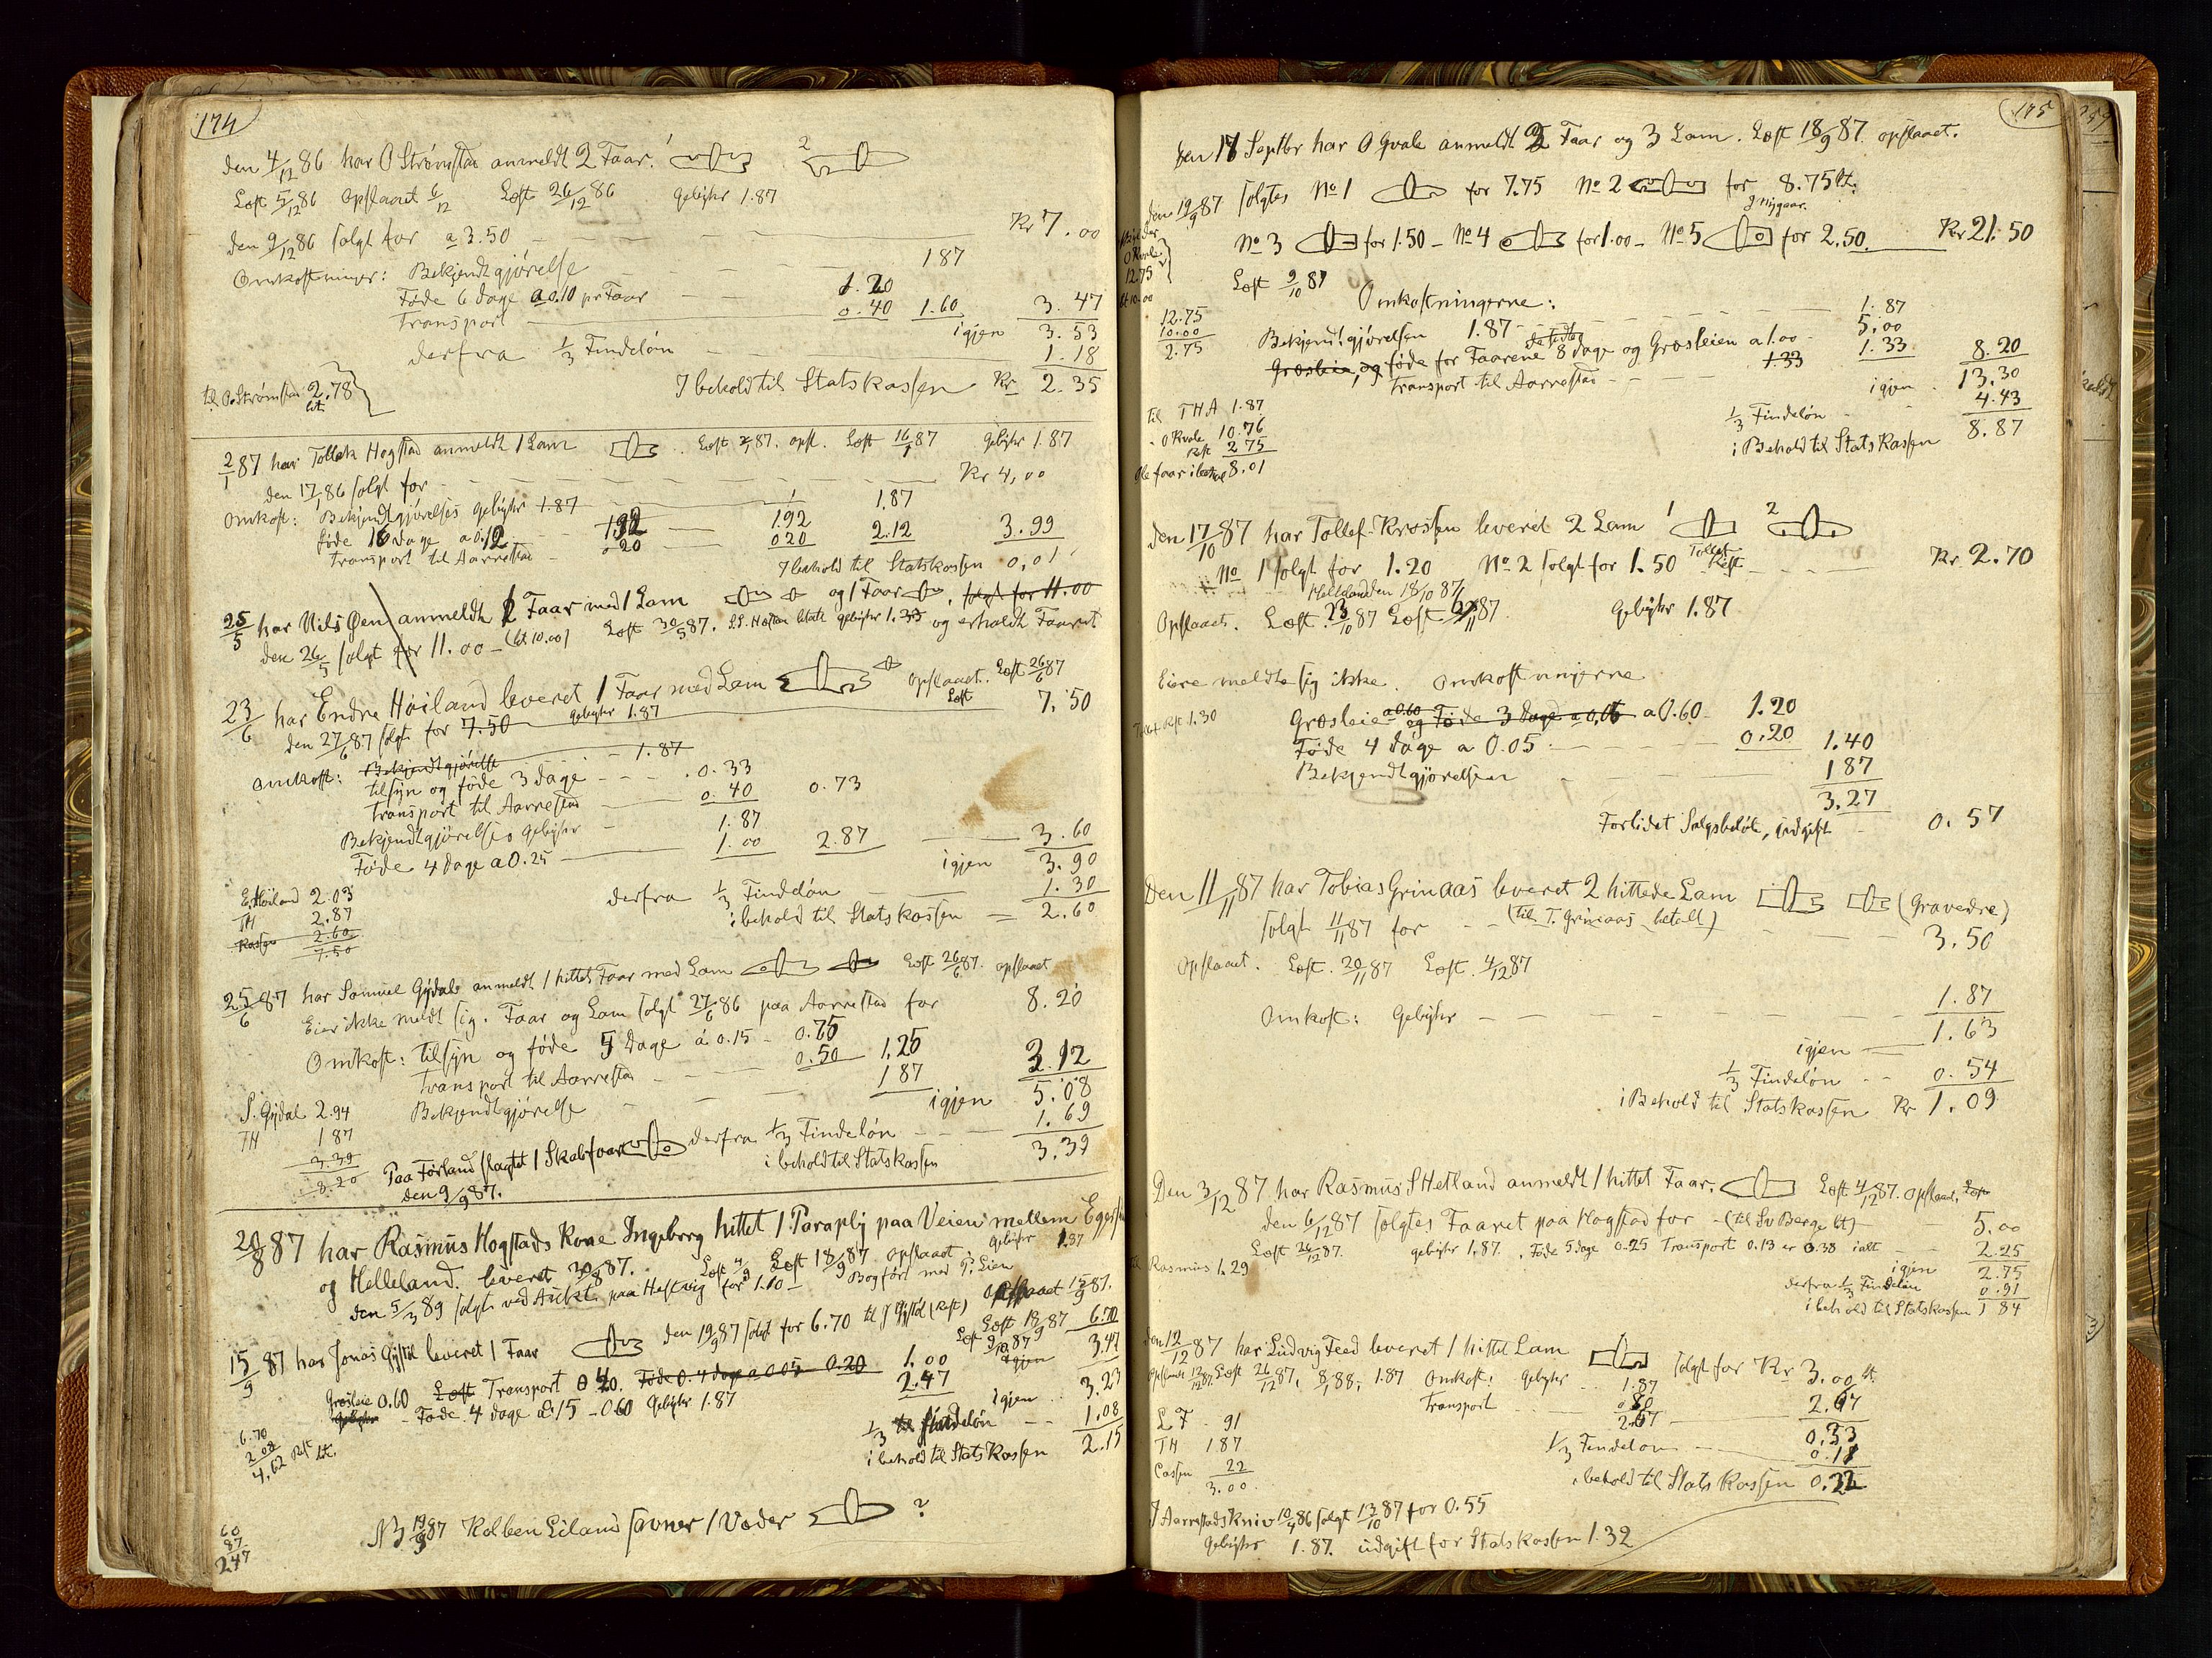 174
den 4/12 86 har O Strømstad anmeldt 2 Faar. 1 2
Læst 5/12 86 opslaaet 6/12 Læst 26/12 86 Gebyhr 1.87
den 9/12 86 solgt for a 3.50 Kr 7.00
Omkostninger: Bekjendtgjørelse 187
Føde 6 dage a 0.10 pr Faar 1.20
Transport 0.40 1.60 3.47
igjen 3.53
derfra 1/3 Findeløn 1.18
I behold til Statskassen Kr 2.35
til O. Strømstad 2.78
bt
2/1 87 har Tollak Hogstad anmeldt 1 Lam Læst 2/1 87. opsl. Læst 16/1 87 Gebyhr 1.87
den 17/1 86 solgt for Kr 4,00
Omkost: Bekjendtgjørelses Gebyhr 1.87 1.87
føde 16 dage a 0.12 1.92 1.92 2.12 3.99
Transport til Aarrestad 0.20 020
I behold til Statskassen 0,01
25/5 har Nils Øen anmeldt 1 Faar med 1 Lam og 1 Faar, solgt for 11.00
den 26/5 solgt for 11.00 (bt. 10.00) Læst 30/5 87. gebyhr 1.33 og erholdt Faaret
23/6 har Endre Høiland leveret 1 Faar med Lam opslaaet. Læst 26/6 87
Læst
den 27/6 87 solgt for 7.50 Gebyhr 1.87 7.50
Omkost: Bekjendtgjørelse 1.87
tilsyn og føde 3 dage 0.33
Transport til Aarrestad 0.40 0.73
Bekjendtgjørelses Gebyhr 1.87
Føde 4 dage a 0.25 1.00 2.87 3.60
igjen 3.90
derfra 1/3 Findeløn 1.30
i behold til Statskassen 2.60
E. Høiland 2.03
TH 2.87
Kassen 2.60
7.50
25/6 87 har Samuel Gydal anmeldt 1 hittet Faar med Lam Læst 26/6 87. opslaaet
Eier ikke meldt sig. Faar og Lam solgt 27/6 86 paa Aarrestad for 8.20
Omkost: tilsyn og føde 5 dage á 0.15 0.75
Transport til Aarrestad 0.50 1.25
Bekjendtgjørelse 187 3.12
igjen 5.08
derfra 1/3 Findeløn 1.69
i behold til Statskassen 3.39
S. Gydal 2.94
TH 187
3.39
8.20
Paa Førland slagtet 1 Skabfaar
den 9/9 87.
20/8 87 har Rasmus Hogstads Kone Ingeborg hittet 1 Paraply paa Veien mellem Egersu
og Helleland. leveret 30/8 87. Læst 4/9 Læst 18/9 87 opslaaet. Gebyhr 1.87
den 5/3 89 solgt ved Auktn paa Hestvig for 1.10 Bogført med
15/9 87 har Jonas Gystøl leveret 1 Faar den 19/9 87 solgt for 6.70 til J Gystøl (Rest) opslaaet 15/9 87.
Læst 18/9 87 6.70
Læst 9/10 87
Græsleie 0.60 Læst Transport 0.40. Føde 0.4 dage a 0.05 0.20 1.00
Føde. 4 dage a 15 - 060 Gebyhr 1.87 2.47 3.47
igjen 3.23
1/3 Findeløn 1.08
i behold til Statskassen 2.15
6.70
2.08
4.62 Rest bt.
NB 19/9 87 Kolben Eiland savner 1 Væder ?
60
87
247
175
Den 17 Septbr har O Gvale anmeldt 2 Faar og 3 Lam. Læst 18/9 87. opslaaet.
den 19/9 87 solgtes No 1 for 7.75 No 2 for 8.75 bt.
No 3 for 1.50 - No 4 for 1.00 - No 5 for 2.50. Kr 21.50
Læst 9/10 87
O Kvale
12.75
bt 10.00
12.75
10.00
2.75
Omkostningerne:
Bekjendtgjørelsen 1.87 1.87
Græsleie, og føde for Faarene 8 dage og Græsleien a 1.00 5.00
Transport til Aarrestad 1.33 1.33 8.20
igjen 13.30
1/3 Findeløn 4.43
i Behold til Statskassen 8.87
til THA 1.87
- O Kvale 10.76
Rest 2 75
8.01
den 17/10 87 har Tollef Krossen leveret 2 Lam 1 2
No 1 solgt for 1.20 No 2 solgt for 1.50 Tollef Rest Kr 2.70
Helleland den 18/10 87
Opslaaet. Læst. 23/10 87 Læst 6/11 87. Gebyhr 1.87
Eiere meldte sig ikke. Omkostningerne
Græsleie a 0.60 og Føde 3 dage a 0,05 a 0.60 1.20
Føde 4 dage a 0.05 0.20 1.40
Bekjendtgjørelsen 187
3.27
Forlidet Salgsbeløb, udgift 0.57
Rest 1.30
Den 11/11 87 har Tobias Grinaas leveret 2 hittede Lam (Gravedre)
solgt 11/11 87 for (til T. Grinaas betalt) 3.50
Opslaaet. Læst. 20/11 87 Læst. 4/12 87
Omkost: Gebyhr 1.87
igjen 1.63
1/3 Findeløn 0.54
i Behold til Statskassen Kr 1.09
Den 3/12 87 har Rasmus S Hetland anmeldt 1 hittet Faar. Læst 4/12 87. opslaaet,
den 6/12 87 solgtes Faaret paa Hogstad for (til Sv Berge bt) 5.00
Læst 26/12 87. gebyhr 1.87. Føde 5 dage 0.25 Transport 0.13 er 0.38 ialt 2.25
igjen 2.75
derfra 1/3 Findeløn 0.91
i behold til Statskassen 1 84
til Rasmus 1.29
den 12/12 87 har Ludvig Feed leveret 1 hittet Lam solgt for Kr 3.00 bt.
opslaaet 12/12 87 Læst 26/12 87, 8/1 88, 1.87 Omkost: Gebyhr 1.87
Transport 0.80
2.67 2.67
0.33
1/3 Findeløn 0.11
i behold til Stats Kassen 0.22
L. F. 91
TH 187
Cassen 22
3.00
I Aarrestads kniv 10/4 86 solgt 13/10 87 for 0.55
Gebyhr 1.87. udgift for Statskassen 1.32